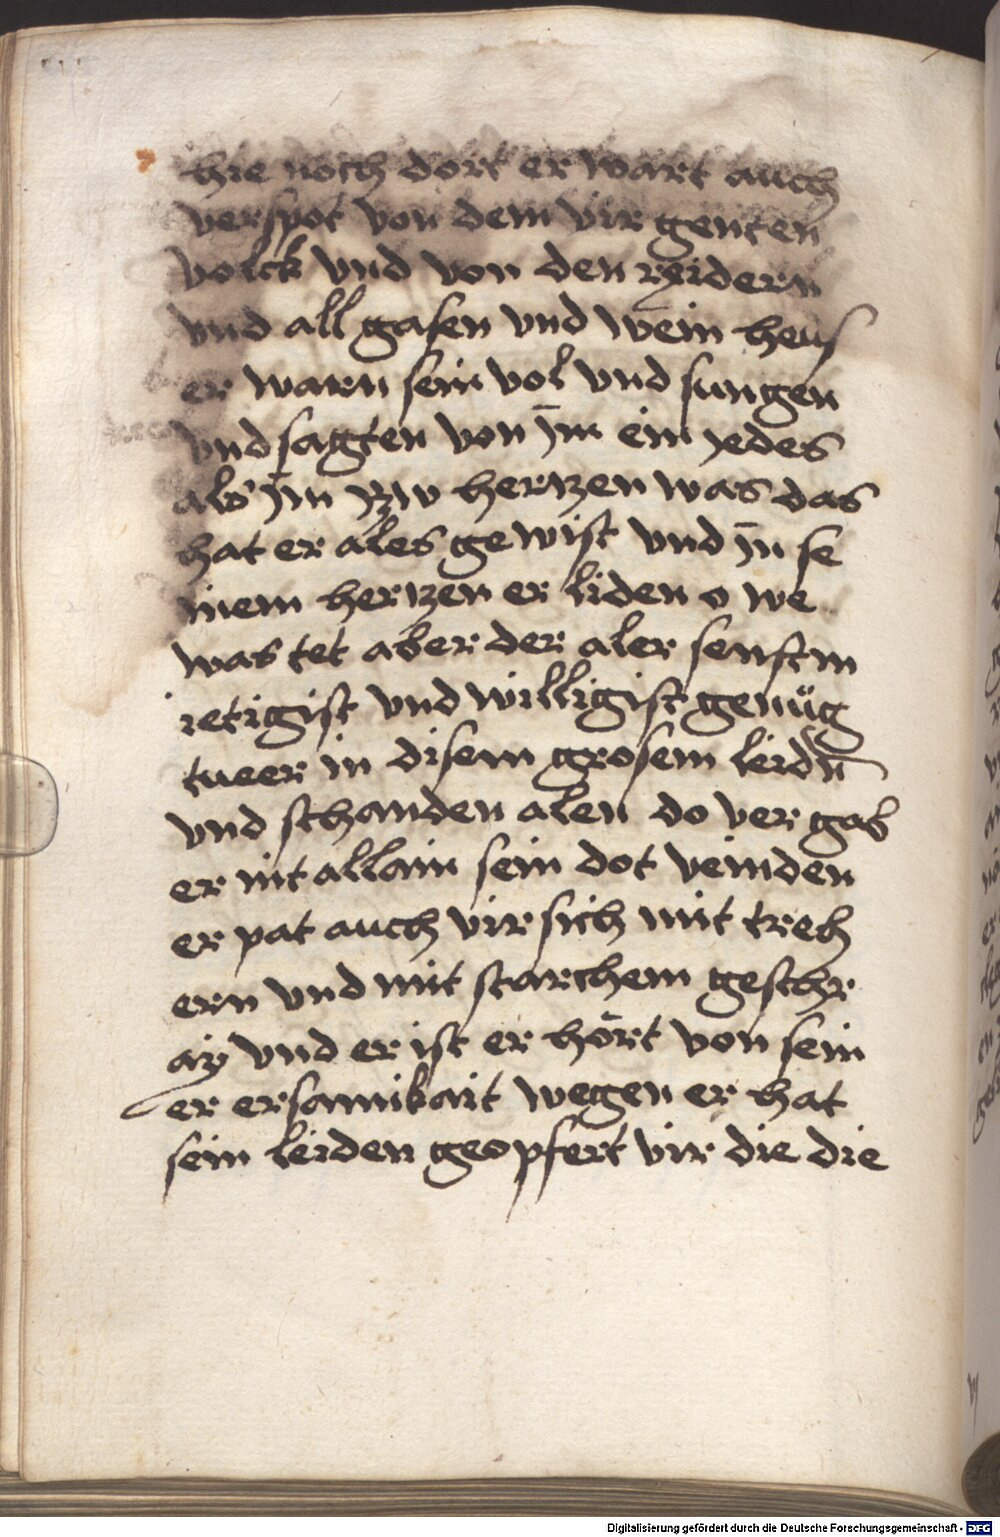 hie noch dort er wart auch
verspot von dem vir genten
volck vnd von den reidern
vnd all gasen vnd wein heus
er warn sein vol vnd sungen
vnd sagten von im ein iedes
als im zw hertzen was das
hat er ales gewist vnd in se
inem hertzen er liden o we
was tet aber der aler senftm
ietigist vnd willigist genüg
tueer in disem grosem leidn̄
vnd schanden alen do ver gab
er nit allain sein dot veinden
er pat auch vir sich mit treh
ern vnd mit starchem geschr
aÿ vnd er ist er hört von sein
er ersamikait wegen er hat
sein leiden geopfert vir die die
Digitalisierung gefördert durch die Deutsche Forschungsgemeinschaft - DFG